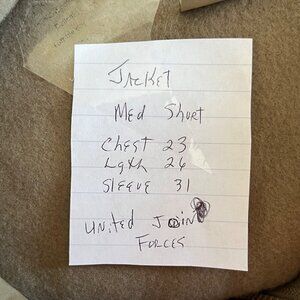 Jacket
Med Short
Chest 23
Lgth 26
Sleeve 31
United Join
Forces